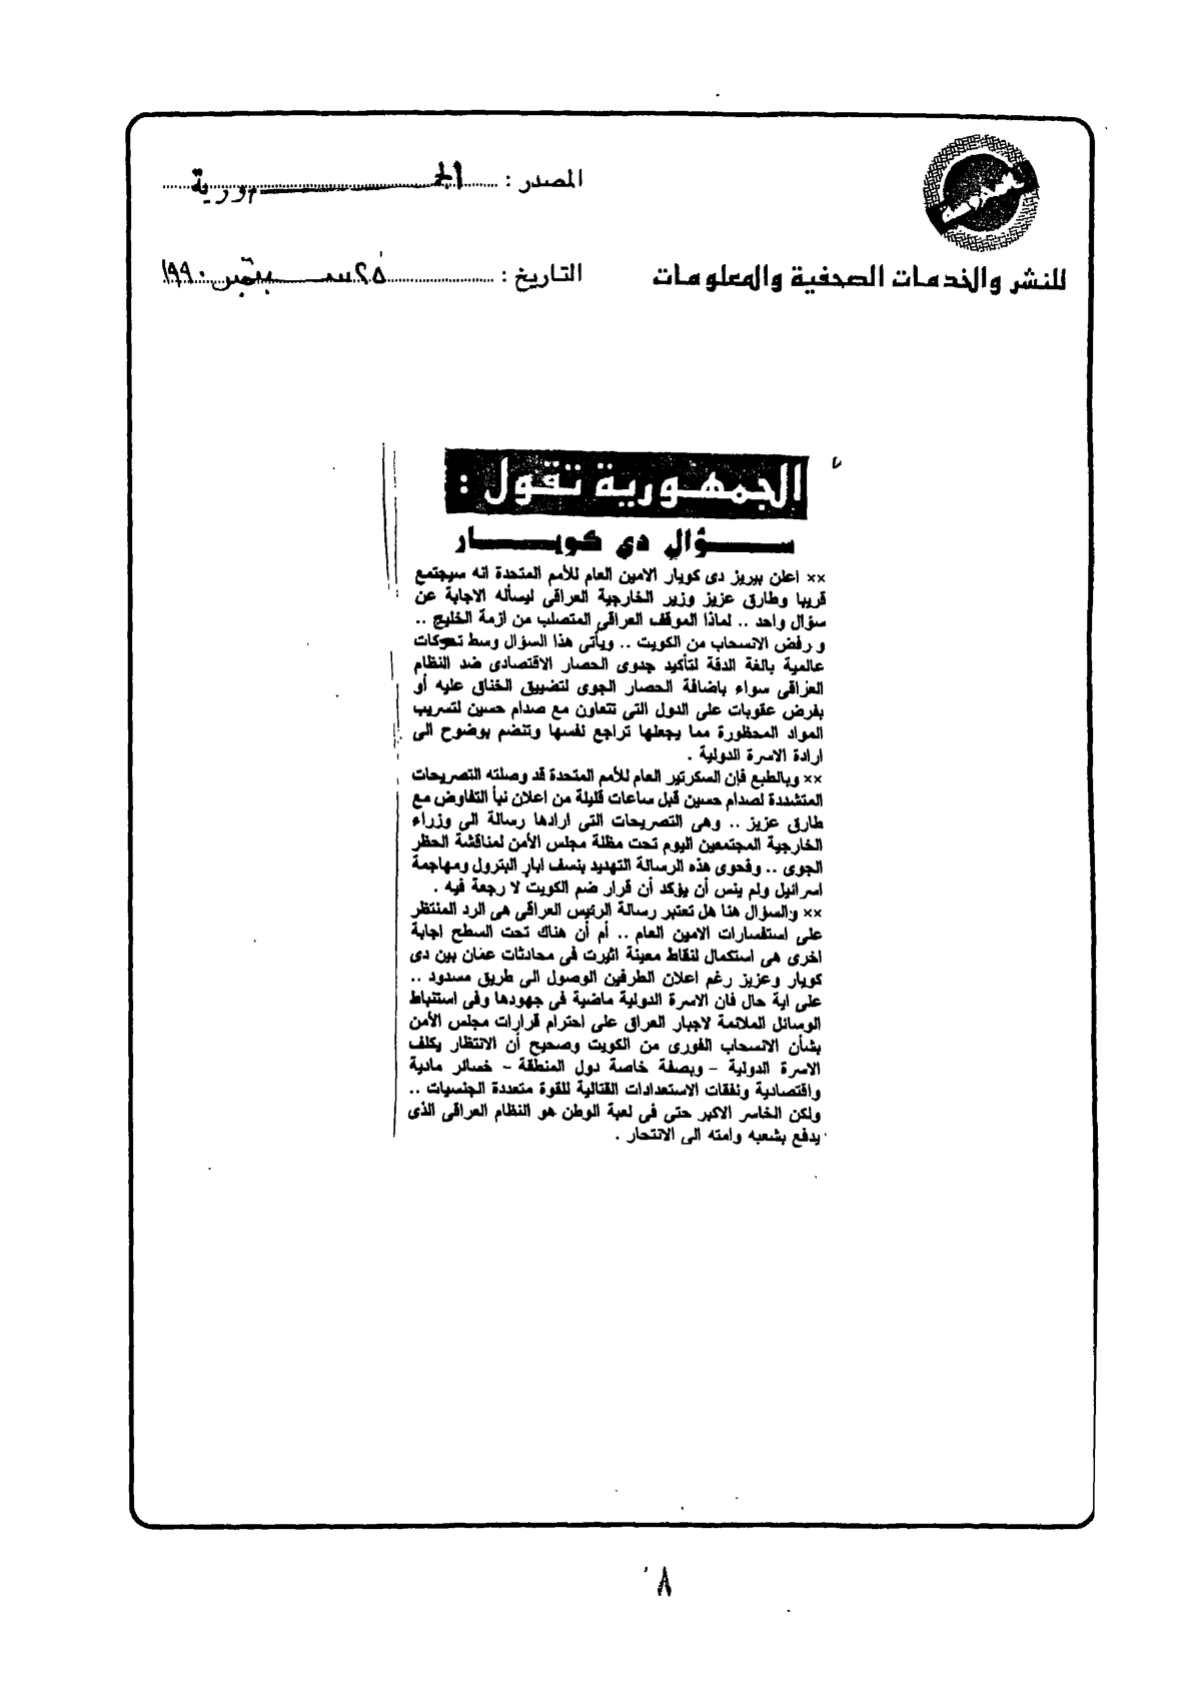 المصدر : الجمهورية
للنشر والخدمات الصحفية والمعلومات
التاريخ : ٢٥ سبتمبر ١٩٩٠
الجمهورية تقول :
سؤال دى كويار
×× اعلن بيريز دى كويار الامين العام للأمم المتحدة انه سيجتمع
قريبا وطارق عزيز وزير الخارجية العراقى ليسأله الاجابة عن
سؤال واحد .. لماذا الموقف العراقى المتصلب من ازمة الخليج ..
و رفض الانسحاب من الكويت .. ويأتى هذا السؤال وسط تحركات
عالمية بالغة الدقة لتأكيد جدوى الحصار الاقتصادى ضد النظام
العراقى سواء باضافة الحصار الجوى لتضييق الخناق عليه أو
بفرض عقوبات على الدول التى تتعاون مع صدام حسين لتسريب
المواد المحظورة مما يجعلها تراجع نفسها وتنضم بوضوح الى
ارادة الاسرة الدولية .
×× وبالطبع فإن السكرتير العام للأمم المتحدة قد وصلته التصريحات
المتشددة لصدام حسين قبل ساعات قليلة من اعلان نبأ التفاوض مع
طارق عزيز .. وهى التصريحات التى ارادها رسالة الى وزراء
الخارجية المجتمعين اليوم تحت مظلة مجلس الأمن لمناقشة الحظر
الجوى .. وفحوى هذه الرسالة التهديد بنسف ابار البترول ومهاجمة
اسرائيل ولم ينس أن يؤكد أن قرار ضم الكويت لا رجعة فيه .
×× والسؤال هنا هل تعتبر رسالة الرئيس العراقى هى الرد المنتظر
على استفسارات الامين العام .. أم أن هناك تحت السطح اجابة
اخرى هى استكمال لنقاط معينة اثيرت فى محادثات عمان بين دى
كويار وعزيز رغم اعلان الطرفين الوصول الى طريق مسدود ..
على اية حال فان الاسرة الدولية ماضية فى جهودها وفى استنباط
الوسائل الملائمة لاجبار العراق على احترام قرارات مجلس الأمن
بشأن الانسحاب الفورى من الكويت وصحيح أن الانتظار يكلف
الاسرة الدولية - وبصفة خاصة دول المنطقة - خسائر مادية
واقتصادية ونفقات الاستعدادات القتالية للقوة متعددة الجنسيات ..
ولكن الخاسر الاكبر حتى فى لعبة الوطن هو النظام العراقى الذى
يدفع بشعبه وامته الى الانتحار .
٨